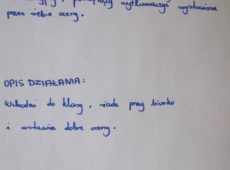 przez siebie oceny.
OPIS DZIAŁANIA:
Wchodzi do klasy, siada przy biurku
i wstawia dobre oceny.